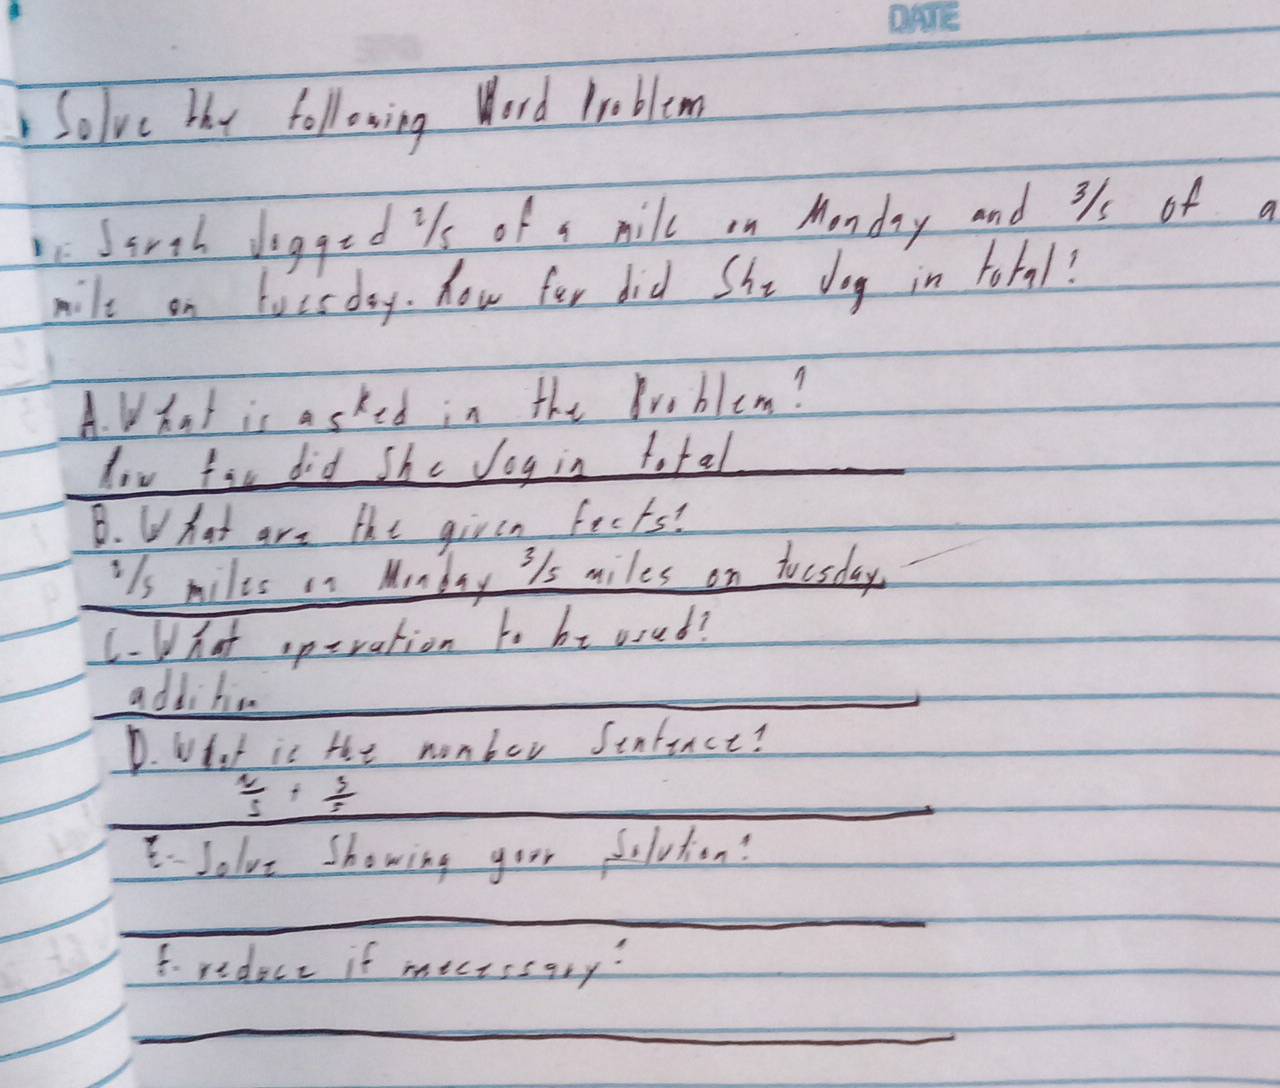 DATE
Solve the following Word Problem
1. Sarah Jogged 2/5 of a mile on Monday and 3/5 of a
mile on tuesday. how far did She Jog in total?
A. What is asked in the Problem?
how far did She Jog in total
B. What are the given facts?
2/5 miles on Monday 3/5 miles on tuesday.
C- What operation to be used?
addition
D. What is the number Sentence?
2/5 + 3/5
E- Solve Showing your Solution?
f. reduce if mecessary?